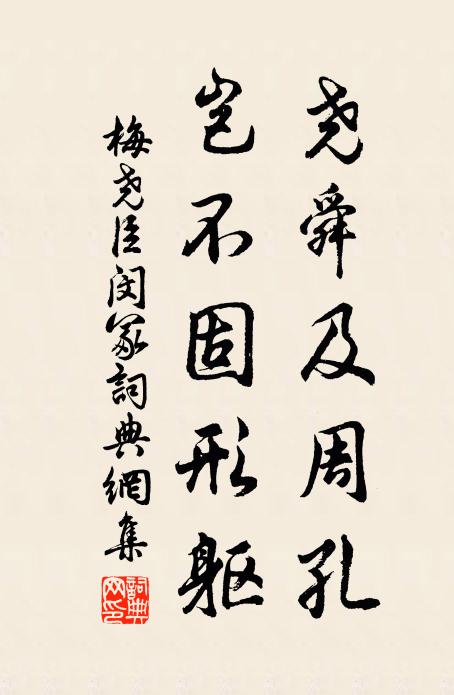 尧舜及周孔
岂不固形躯
梅尧臣闵冢詞典網集
詞典網印